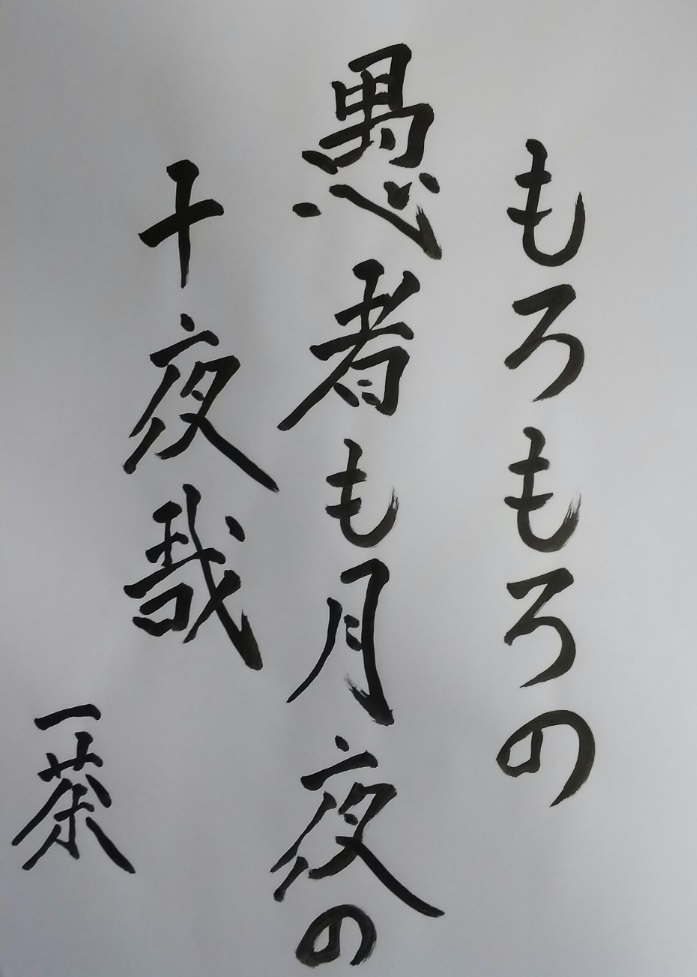 もろもろの
愚者も月夜の
十夜哉
一茶